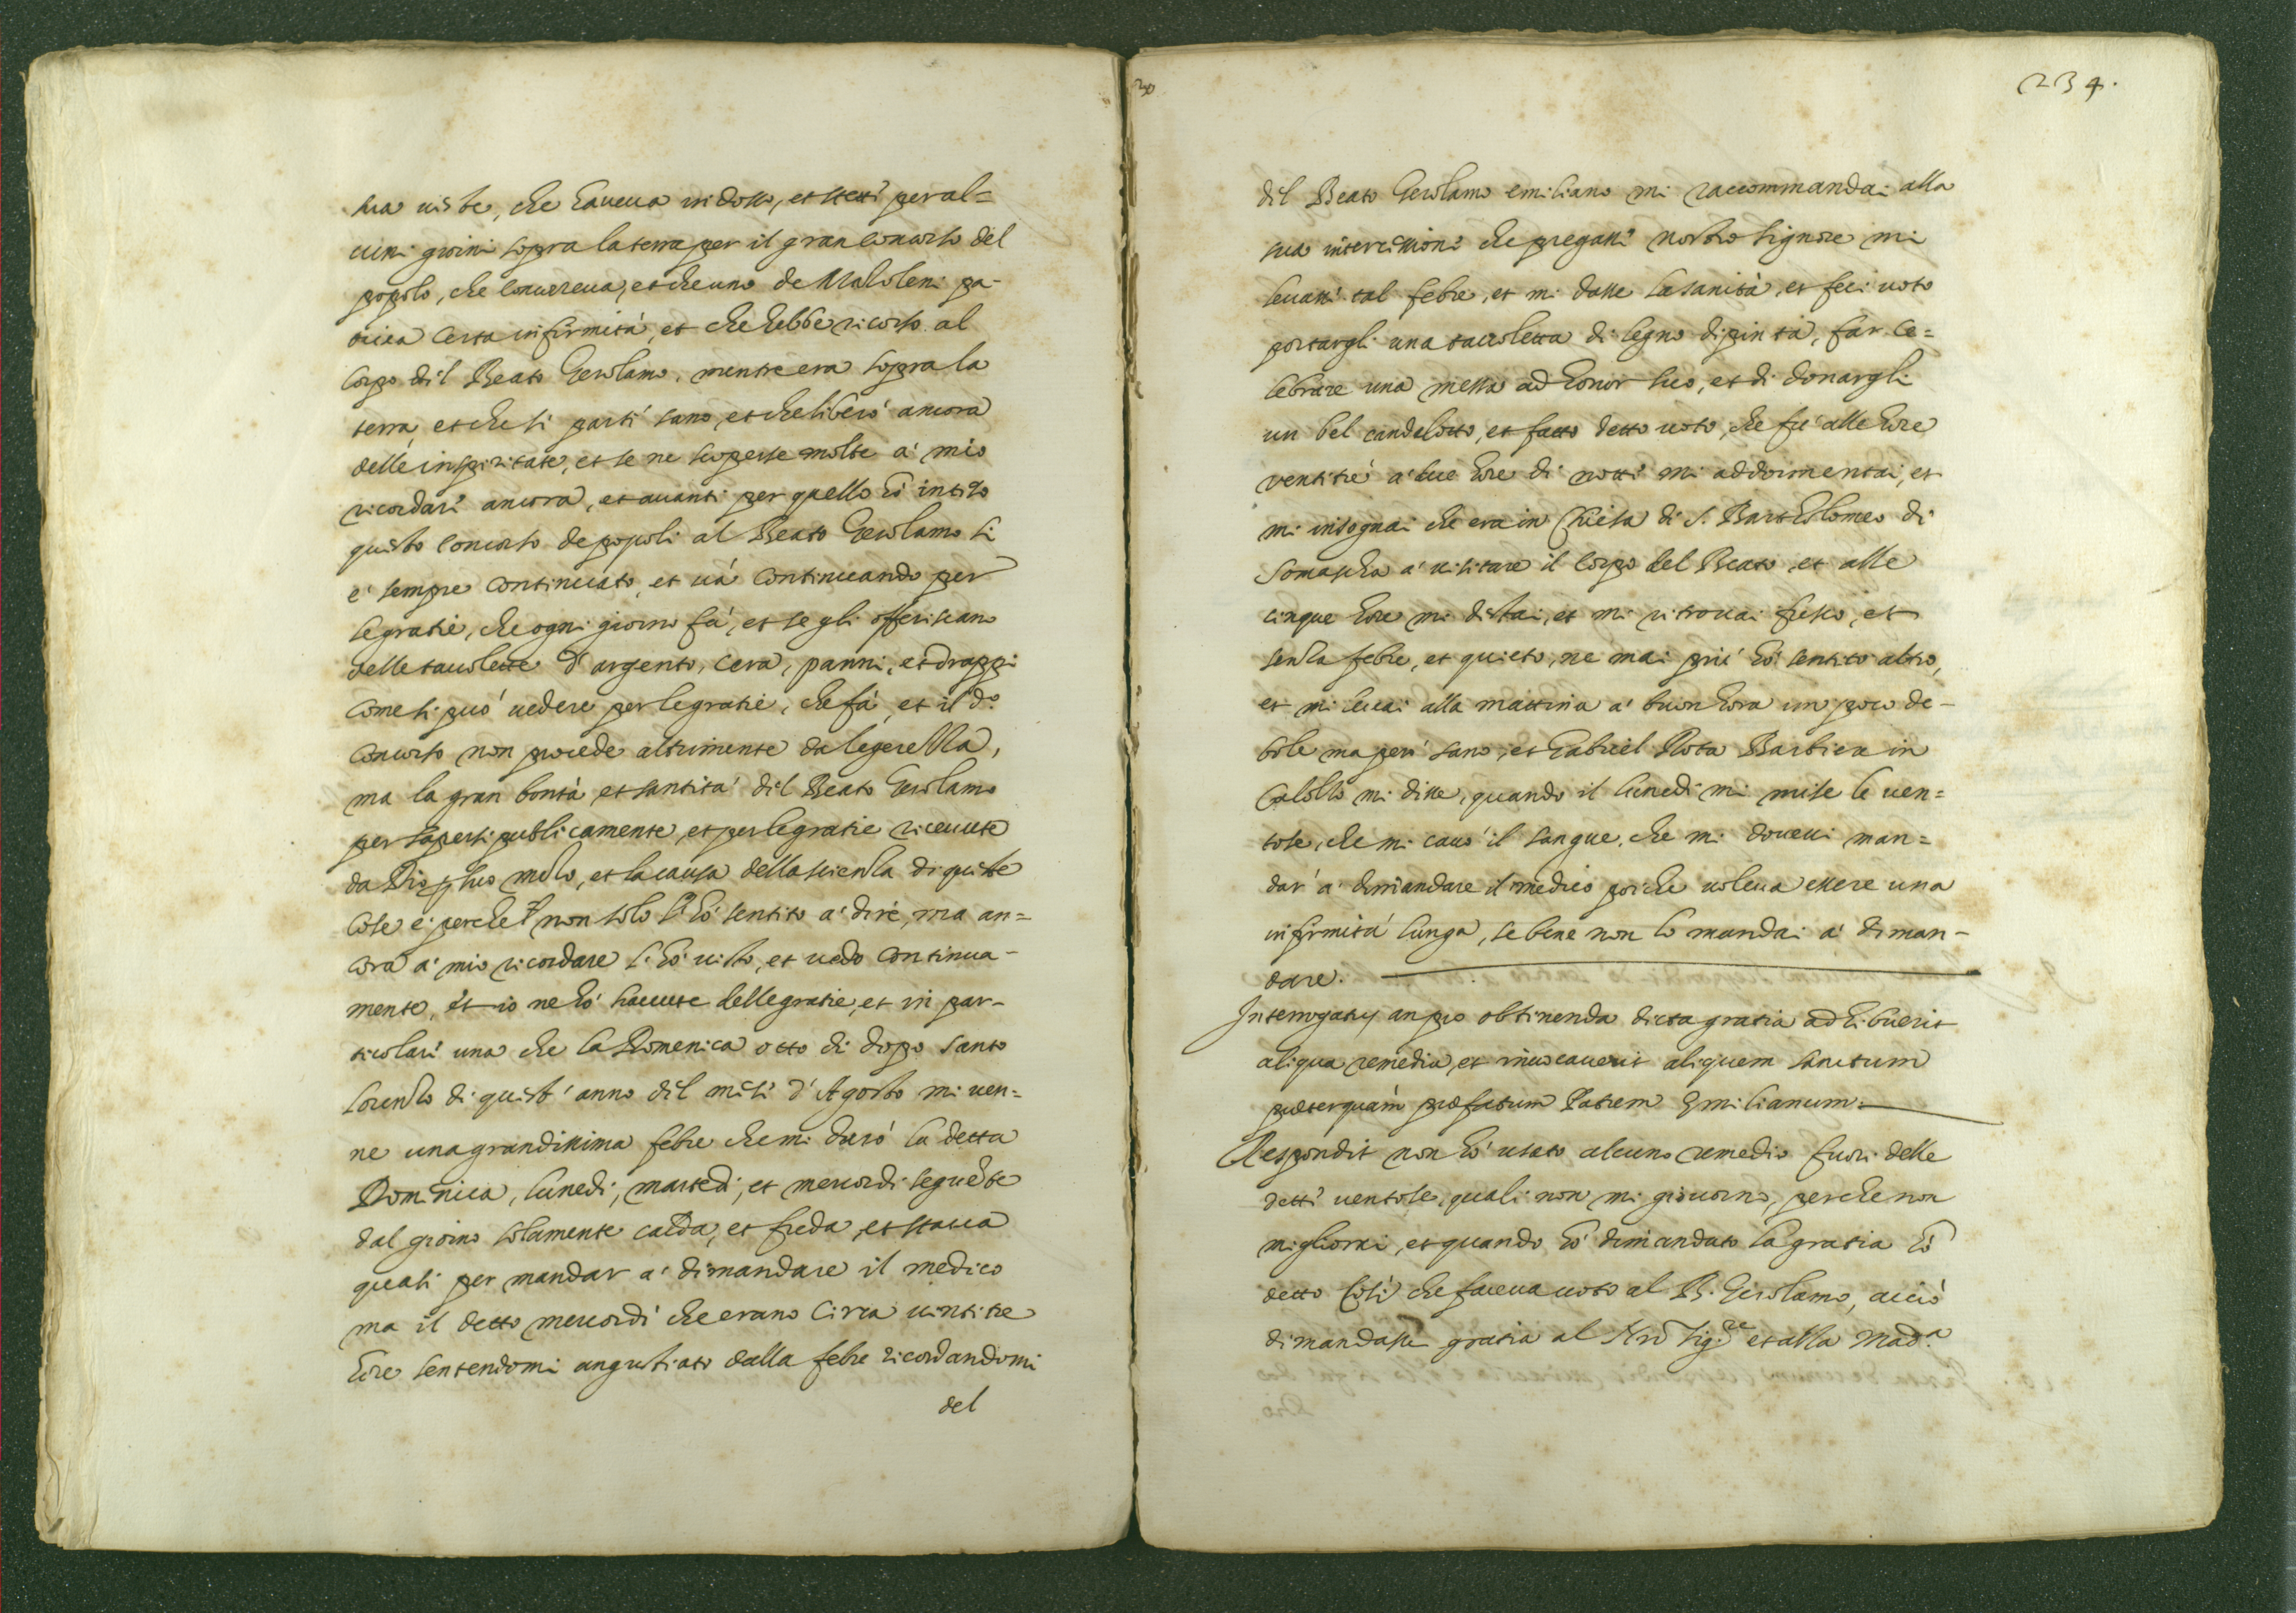 sua uiste, che haueua in dosso, et stette per al=
cuni giorni sopra la terra per il gran concorso del
popolo, che concorreua, et che uno de Mazoleni pa-
tiua certa infirmità, et che hebbe ricorso al
corpo dil Beato Gerolamo, mentre era sopra la
terra et che si parti sano, et che liberò ancora
delle inspiritate, et se ne scoperse molte à mio
ricordare ancora, et auanti per quello hò inteso
questo concorso de popoli al Beato Gerolamo si
è sempre continuato, et uà continuando per
le gratie, che ogni giorno fà, et se gli offeriscano
delle tauolette d'argento, cera, panni, et drappi
come si può uedere per le gratie, che fà, et il dº
concorso non procede altrimente da legerezza,
ma la gran bontà et santità dil Beato Gerolamo
per sapersi publicamente, et per le gratie riceuute
da Dio p suo mezo, et la causa della scienza di queste
cose è perche non solo l'hò sentito à dire, ma an=
cora à mio ricordare l'hò uisto, et uedo continua-
mente, et io ne hò hauute delle gratie, et in par-
ticolare una che la Domenica otto di dopo Santo
Lorenzo di quest'anno dil mese d'Agosto mi uen=
ne una grandissima febre che mi durò la detta
Dominica, lunedi, martedi, et mercordi seguēte
dal giorno solamente calda, et freda, et staua
quasi per mandar à dimandare il medico
ma il detto mercordi che erano circa uintitre
hore sentendomi angustiato dalla febre ricordandomi
del
234.
dil Beato Gerolamo emiliano mi raccommandai alla
sua intercessione che pregasse nostro Signore mi
leuasse tal febre, et mi dasse la sanità, et feci uoto
portargli una tauoletta di legno dipinta, far ce=
lebrare una messa ad honor suo, et di donargli
un bel candelotto, et fatto detto uoto, che fù alle hore
ventitrè à due hore di notte mi addormentai, et
mi insognai che era in Chiesa di S. Bartholomeo di
Somascha à uisitare il corpo del Beato, et alle
cinque hore mi distai, et mi ritrouai fresco, et
senza febre, et quieto, ne mai più hò sentito altro,
et mi leuai alla mattina à buon hora un poco de-
bole ma però sano, et Gabriel Rota Barbiere in
Calolzo mi disse, quando il lunedi mi mise le uen=
tose, che mi cauò il sangue, che mi douessi man=
dar à dimandare il medico poiche uoleua essere una
infirmità lunga, se bene non lo mandai à diman-
dare.
Interrogatus an pro obtinenda dicta gratia adhibuerit
aliqua remedia, et inuocauerit aliquem sanctum
præterquàm præfatum Patrem Emilianum.
Respondit non hò usato alcuno remedio fuori delle
dette uentose, quali non mi giouorno, perche non
migliorai, et quando hò dimandato la gratia hò
detto così che faceua uoto al B. Gerolamo, acciò
dimandasse gratia al Nrō Sig.re et alla Mad.a